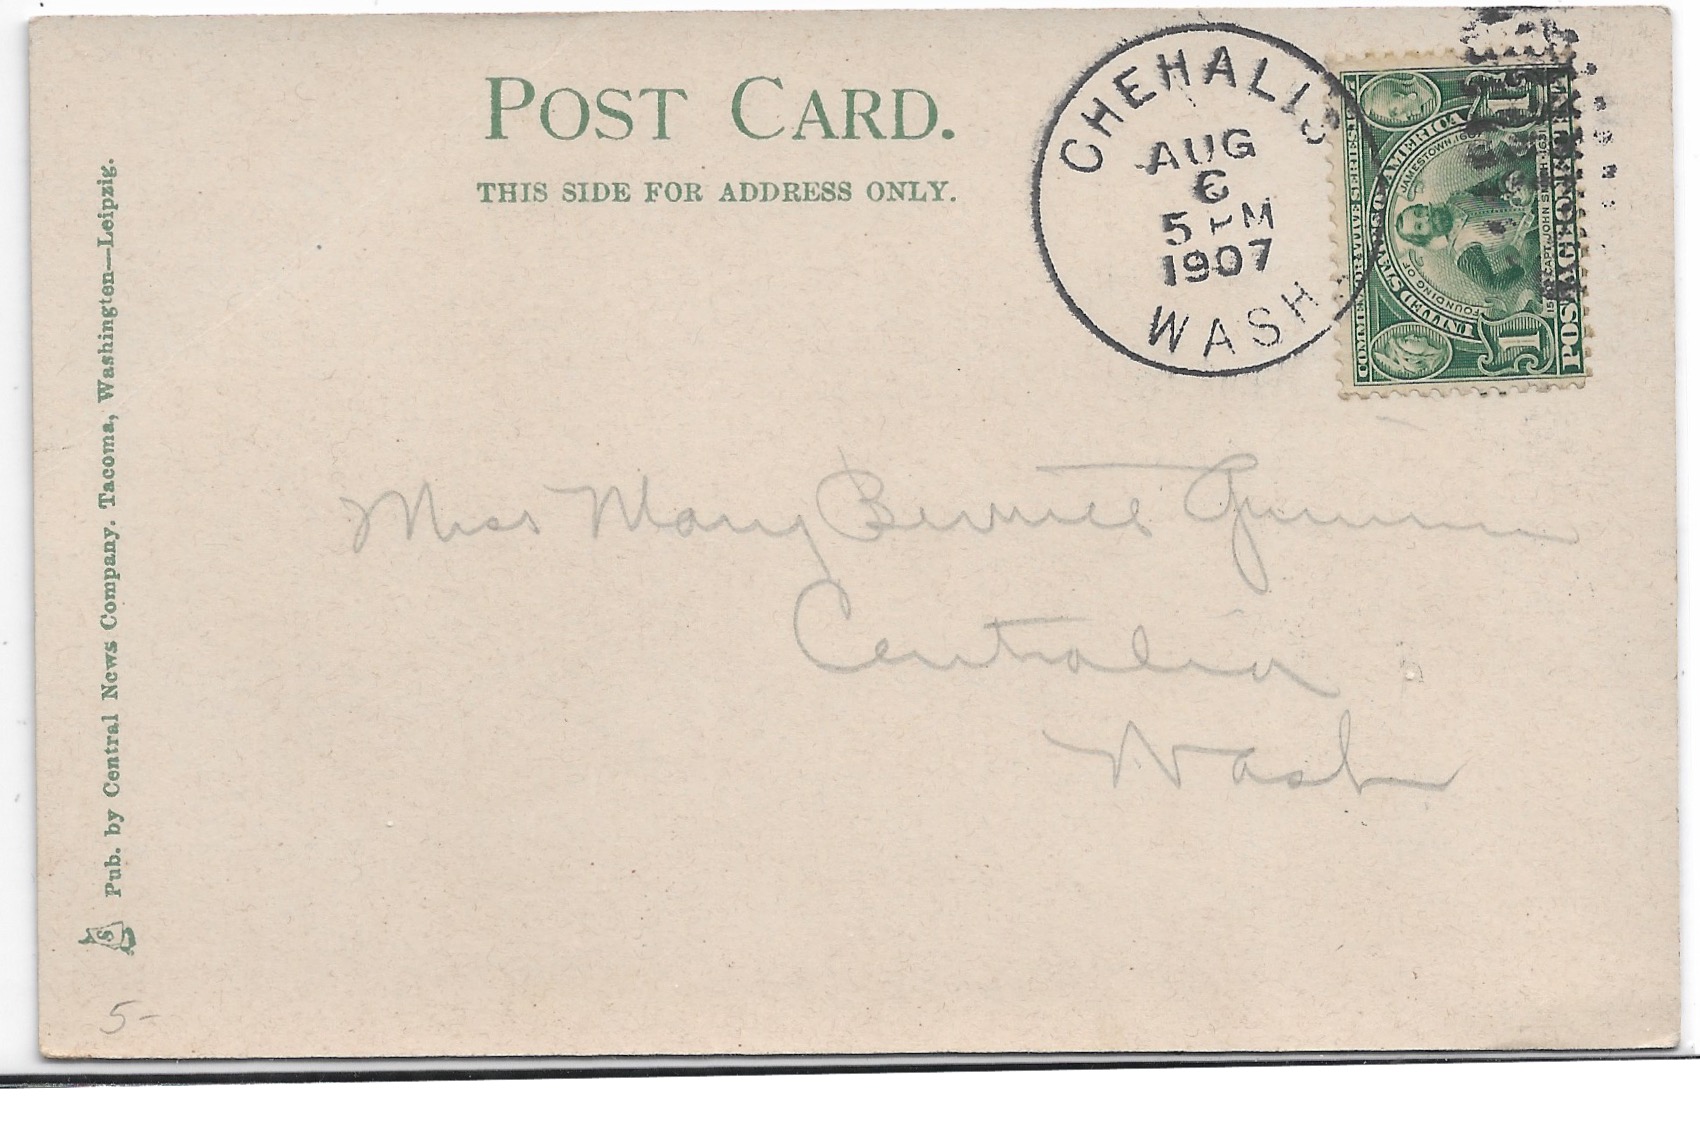 POST CARD.
THIS SIDE FOR ADDRESS ONLY.
CHEHALIS
AUG
6
5 PM
1907
WASH
COMMEMORATIVE SERIES 1907
UNITED STATES OF AMERICA
FOUNDING OF JAMESTOWN 1607
1580 CAPT. JOHN SMITH 1631
1 1
POSTAGE ONE CENT
Miss Mary Bernice
Centralia
Wash
Pub. by Central News Company. Tacoma, Washington—Leipzig.
S
5-